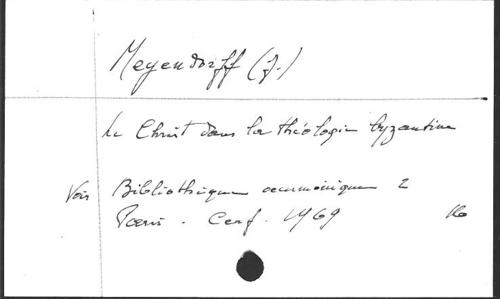 Meyendorff (J.)
Le Christ dans la théologie byzantine
Voir Bibliothèque œcuménique 2
Paris. Cerf. 1969 16